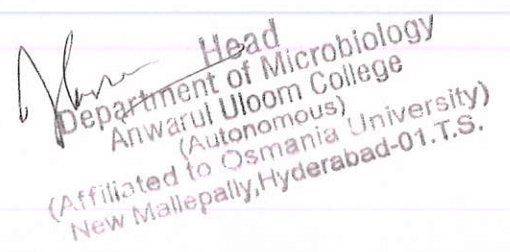 Head
Department of Microbiology
Anwarul Uloom College
(Autonomous)
(Affiliated to Osmania University)
New Mallepally,Hyderabad-01.T.S.